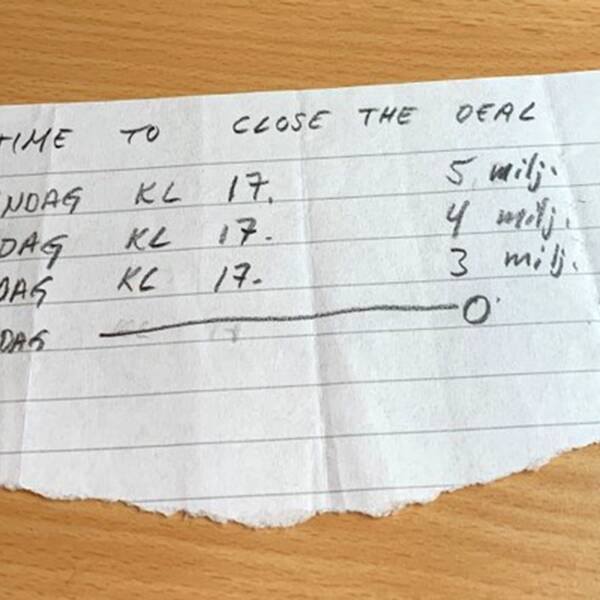 TIME TO CLOSE THE DEAL
NDAG KL 17. 5 milj.
DAG KL 17. 4 milj.
DAG KL 17. 3 milj.
DAG 0